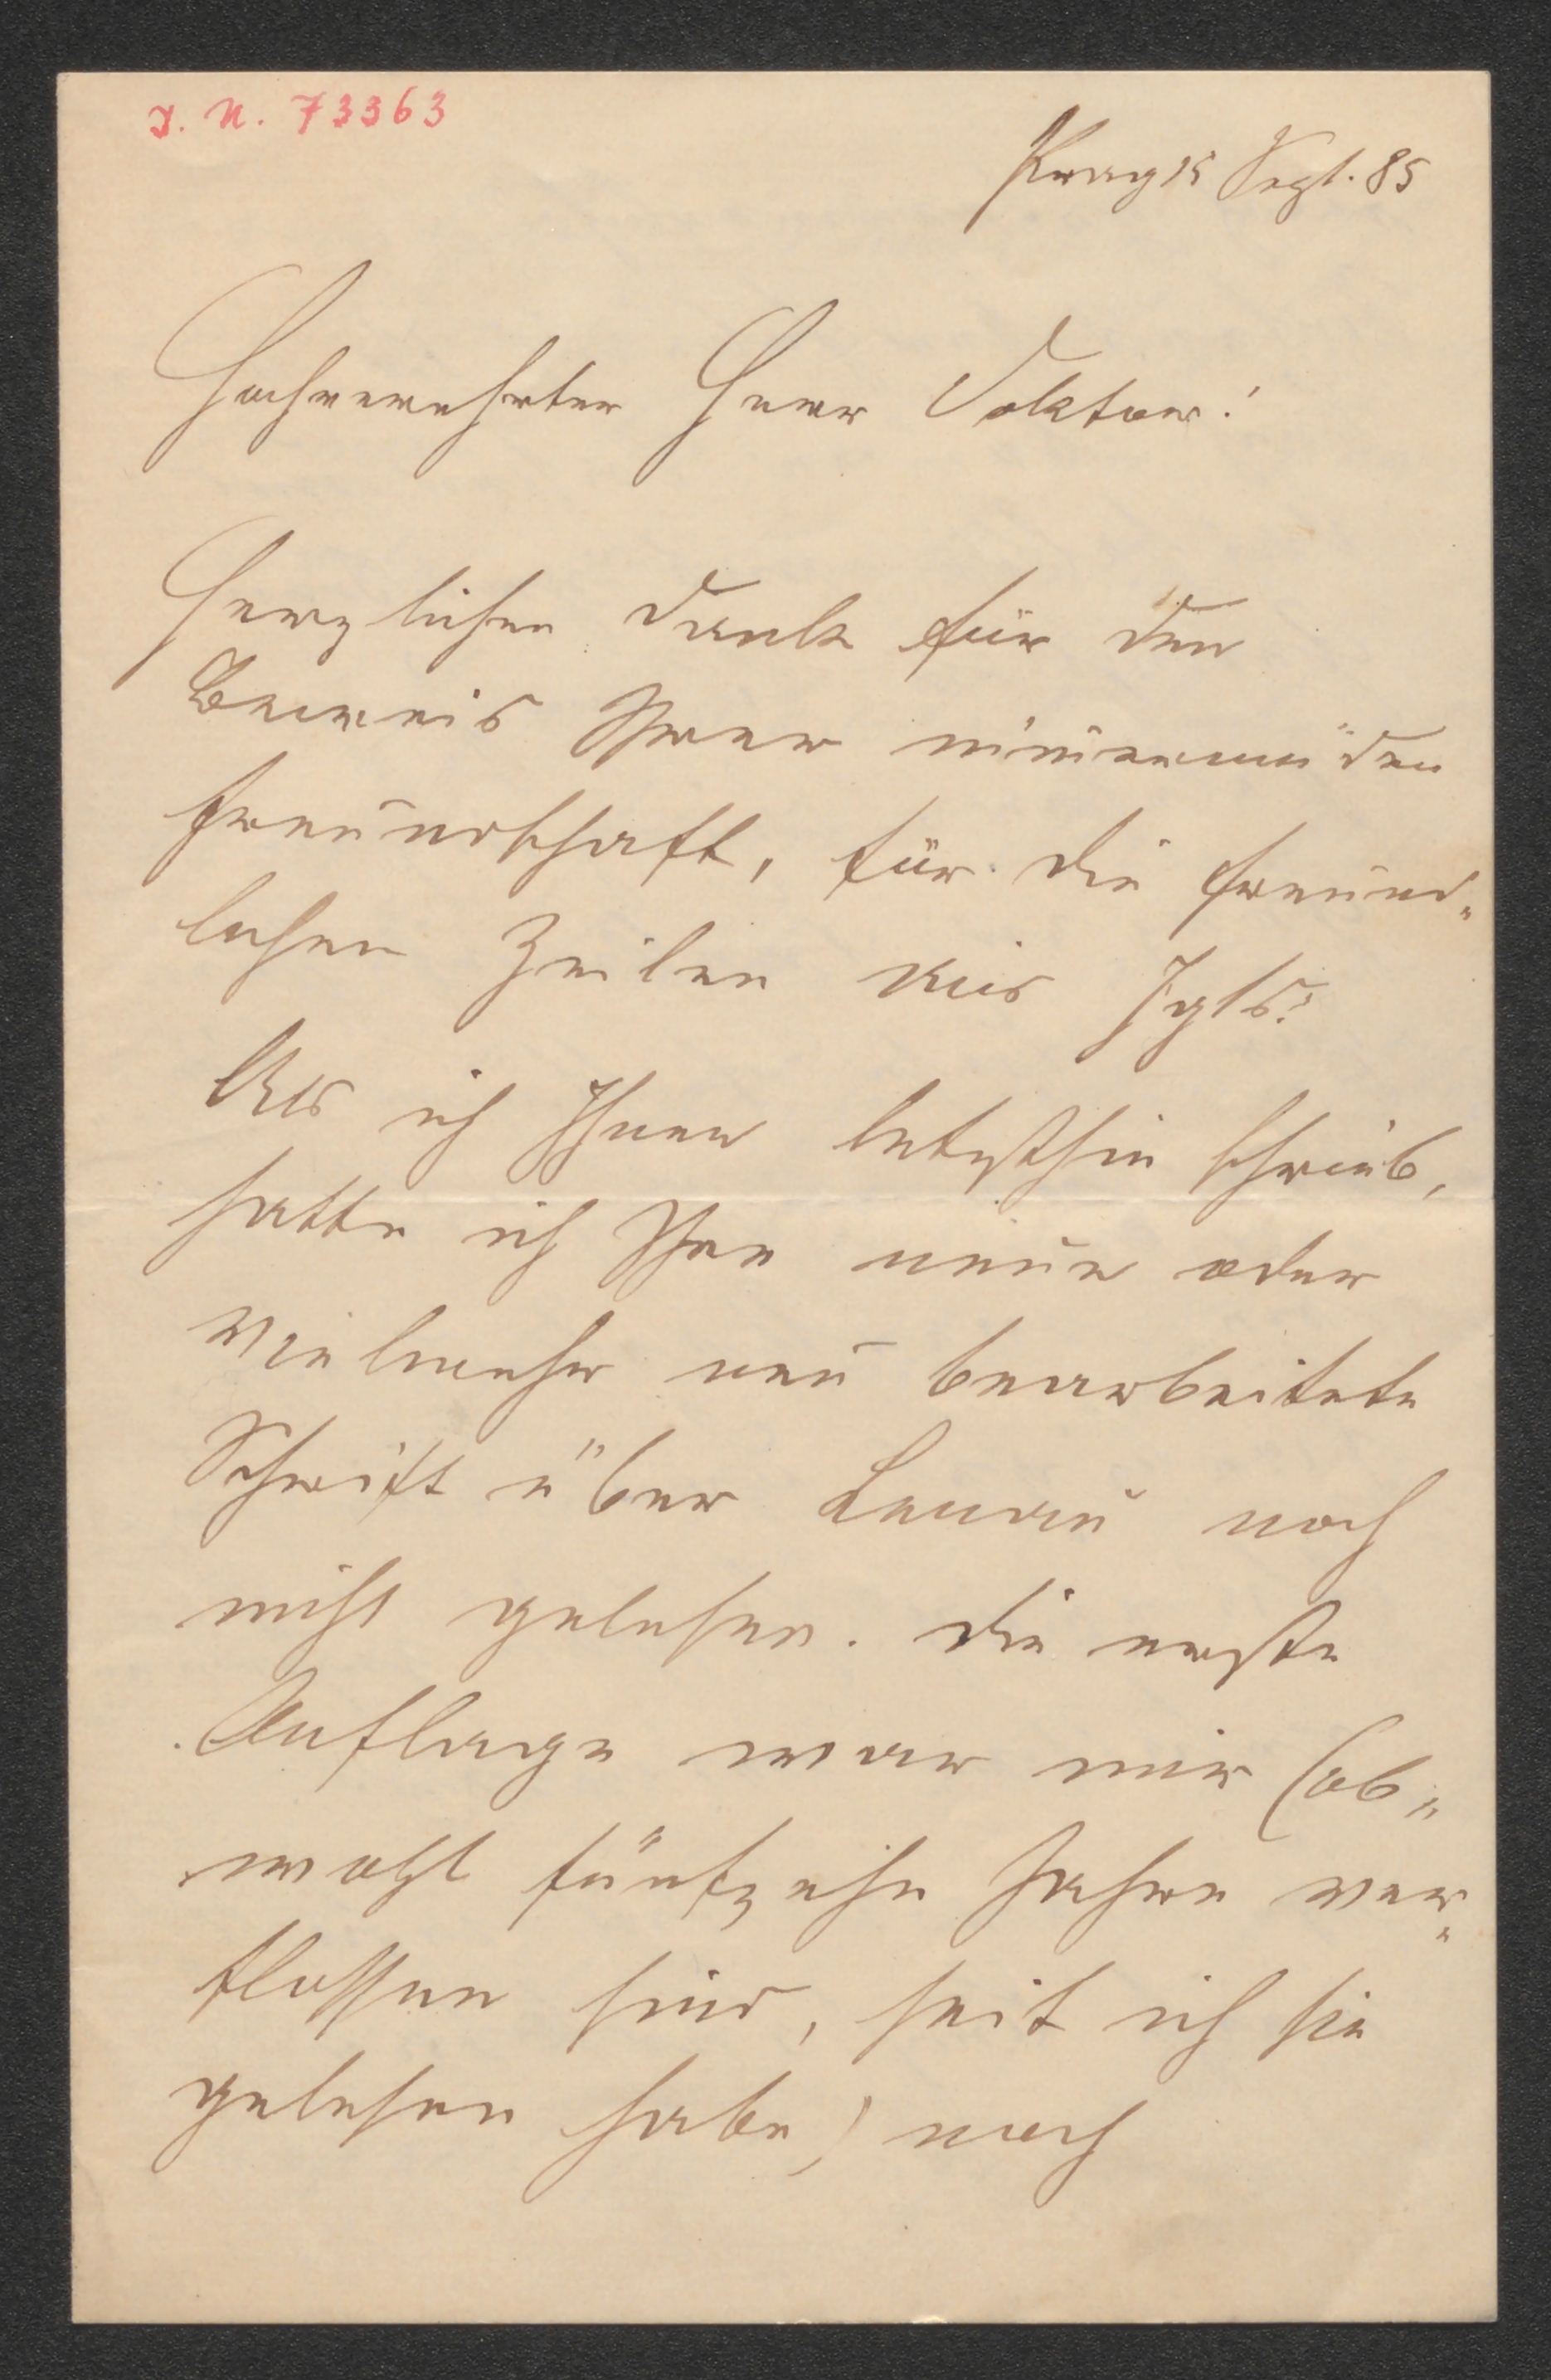 J. N. 73363
Prag 15 Sept. 85
Hochverehrter Herr Doktor!
Herzlichen Dank für den
Beweis Ihrer nimmermüden
Freundschaft, für die freund„
lichen Zeilen aus Igls.
Als ich Ihnen letzthin schrieb,
hatte ich Ihre neue oder
vielmehr neu bearbeitete
Schrift über Lenau noch
nicht gelesen. Die erste
Auflage war mir (ob„
wohl fünfzehn Jahre ver„
flossen sind, seit ich sie
gelesen habe) noch